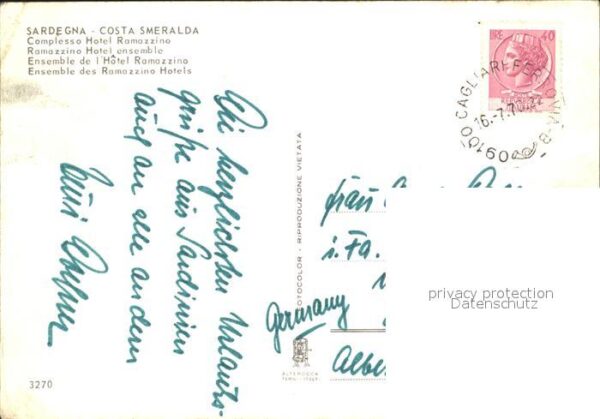 SARDEGNA - COSTA SMERALDA
Complesso Hotel Ramazzino
Ramazzino Hotel ensemble
Ensemble de l'Hôtel Ramazzino
Ensemble des Ramazzino Hotels
LIRE 40
09100 CAGLIARI FERROVIA-B
16.-7.70.22
Die herzlichsten Urlaubs-
grüße aus Sardinien
und an alle anderen
FOTOCOLOR - RIPRODUZIONE VIETATA
Frau
i. Fa.
Germany
Albe
privacy protection
Datenschutz
ALTEROCCA
TERNI - ITALY
3270